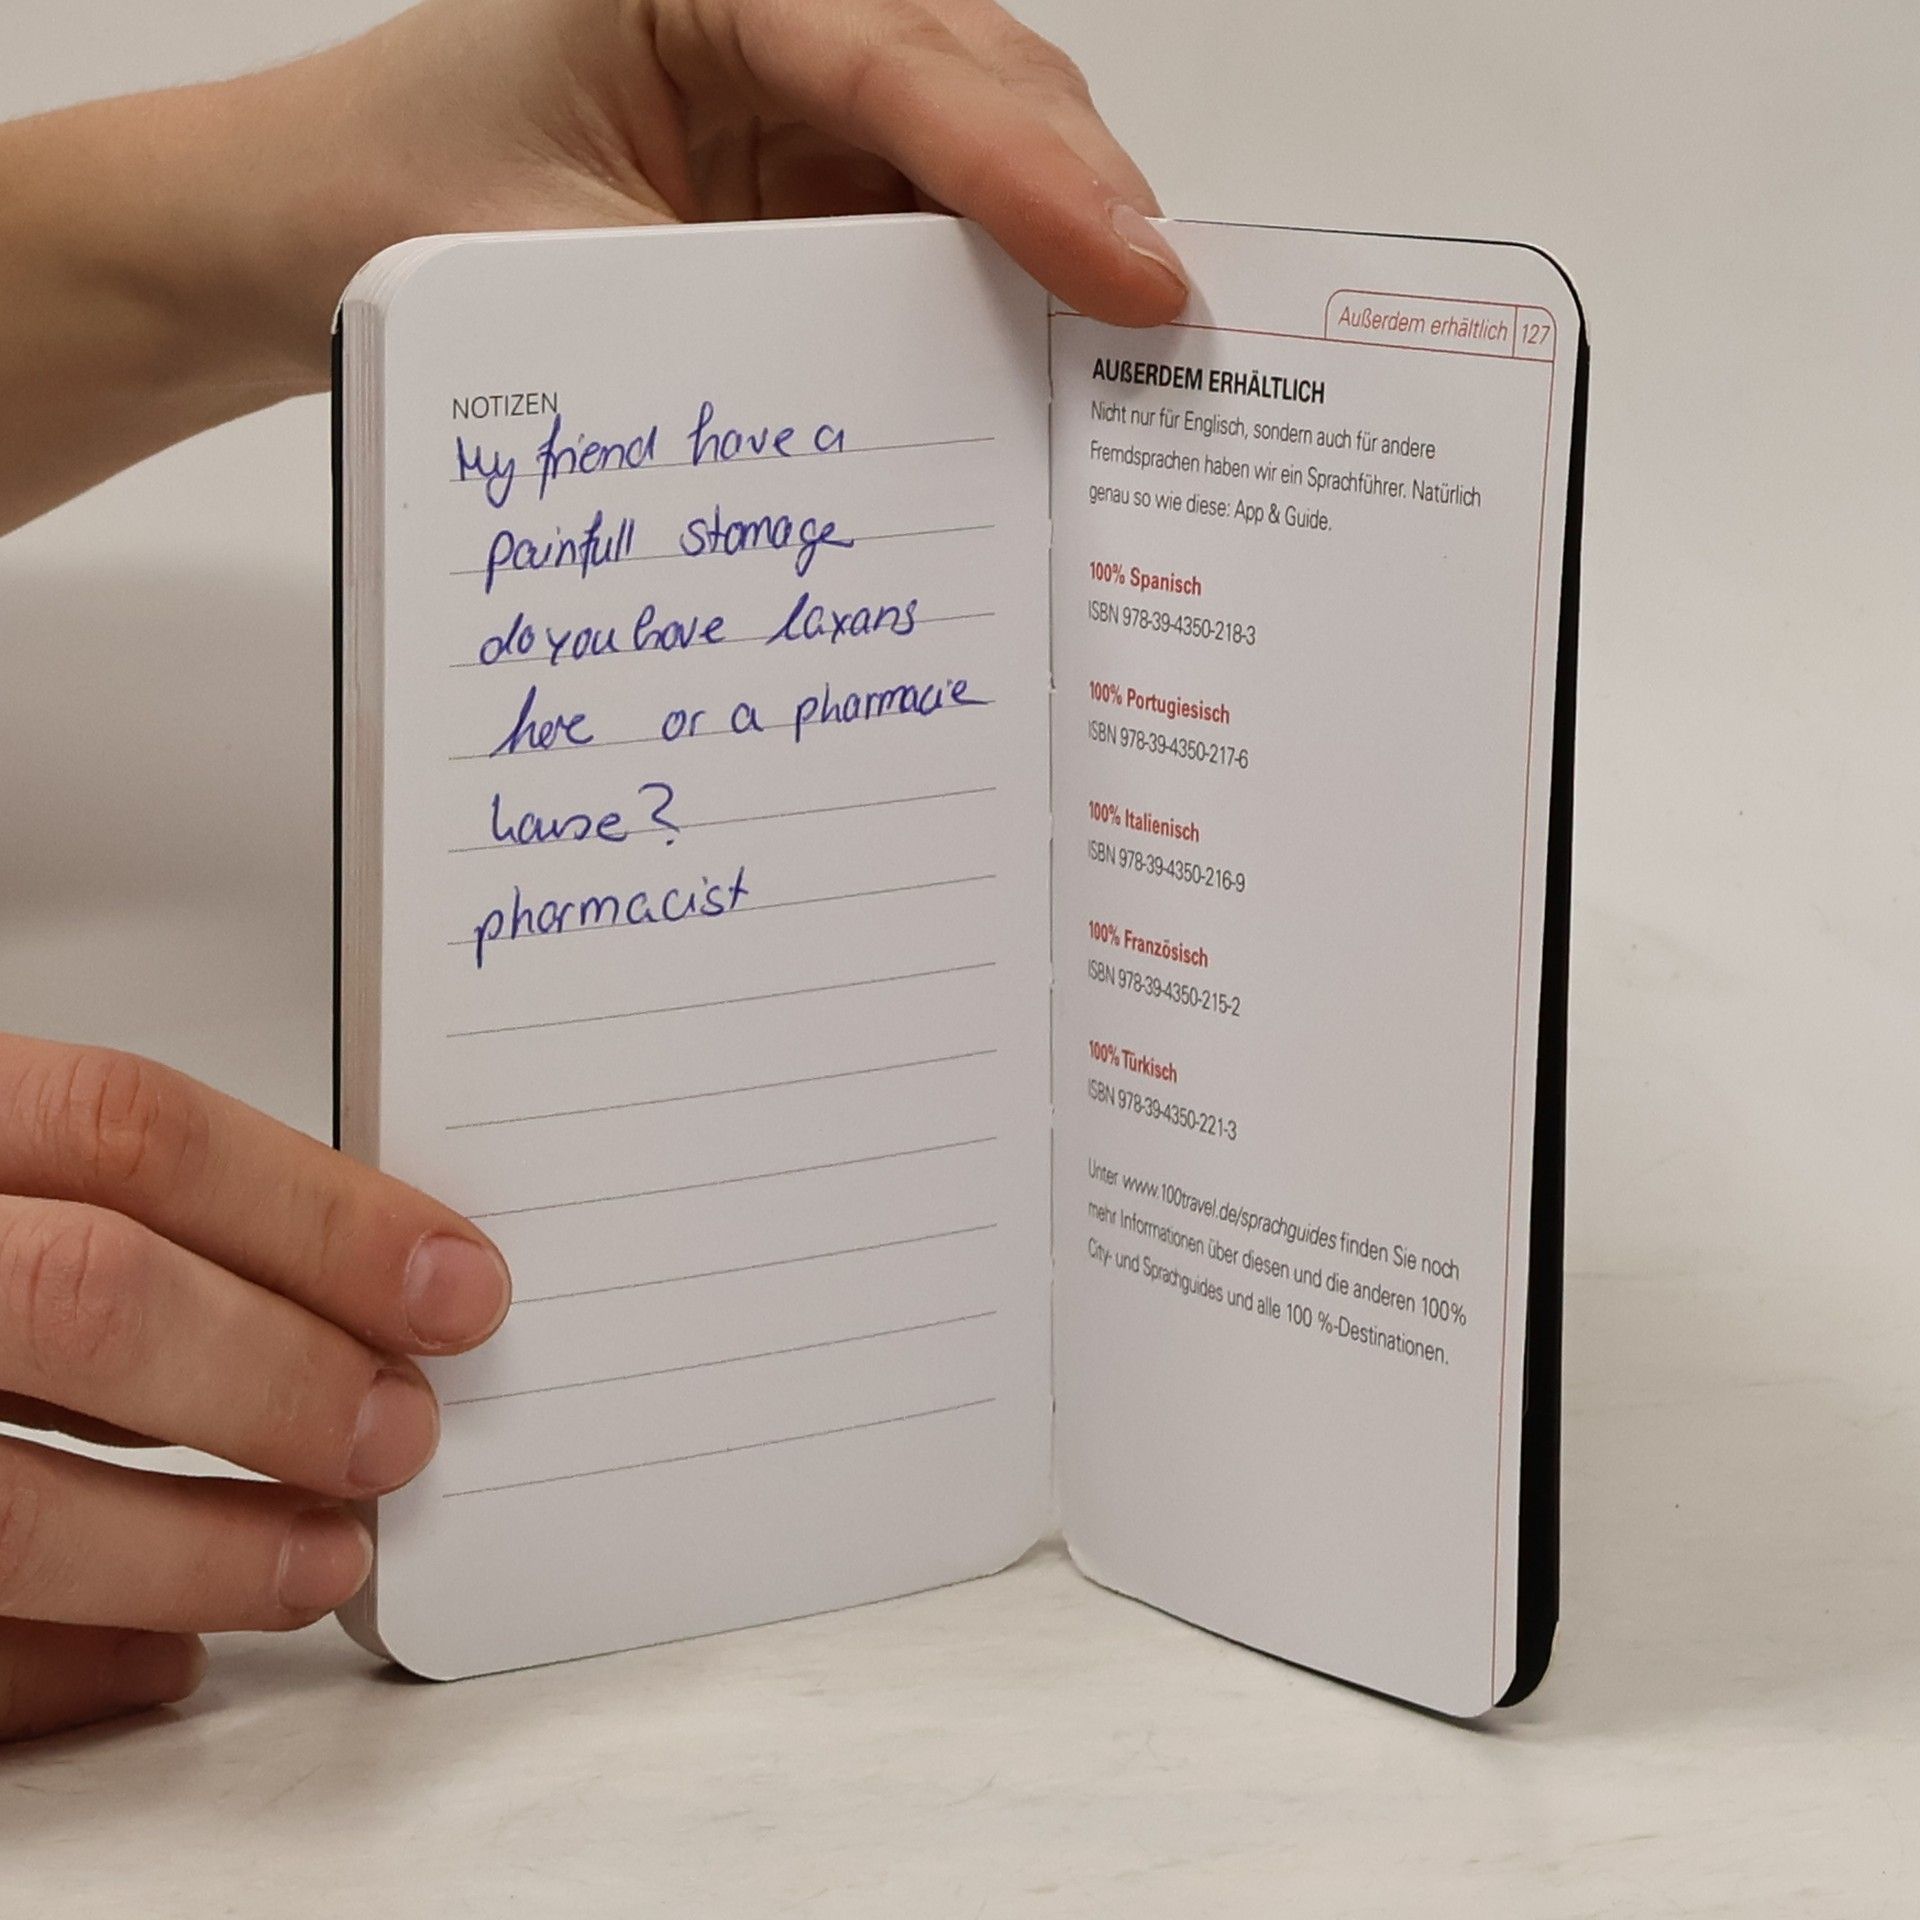 NOTIZEN
My friend have a
painfull stomage
do you have laxans
here or a pharmacie
house?
pharmacist
Außerdem erhältlich 127
AUßERDEM ERHÄLTLICH
Nicht nur für Englisch, sondern auch für andere
Fremdsprachen haben wir ein Sprachführer. Natürlich
genau so wie diese: App & Guide.
100% Spanisch
ISBN 978-39-4350-218-3
100% Portugiesisch
ISBN 978-39-4350-217-6
100% Italienisch
ISBN 978-39-4350-216-9
100% Französisch
ISBN 978-39-4350-215-2
100% Türkisch
ISBN 978-39-4350-221-3
Unter www.100travel.de/sprachguides finden Sie noch
mehr Informationen über diesen und die anderen 100%
City- und Sprachguides und alle 100 %-Destinationen.